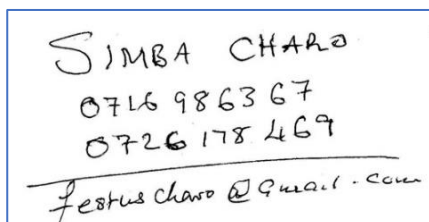 SIMBA CHARO
0716 986367
0726 178 469
festuscharo@gmail.com